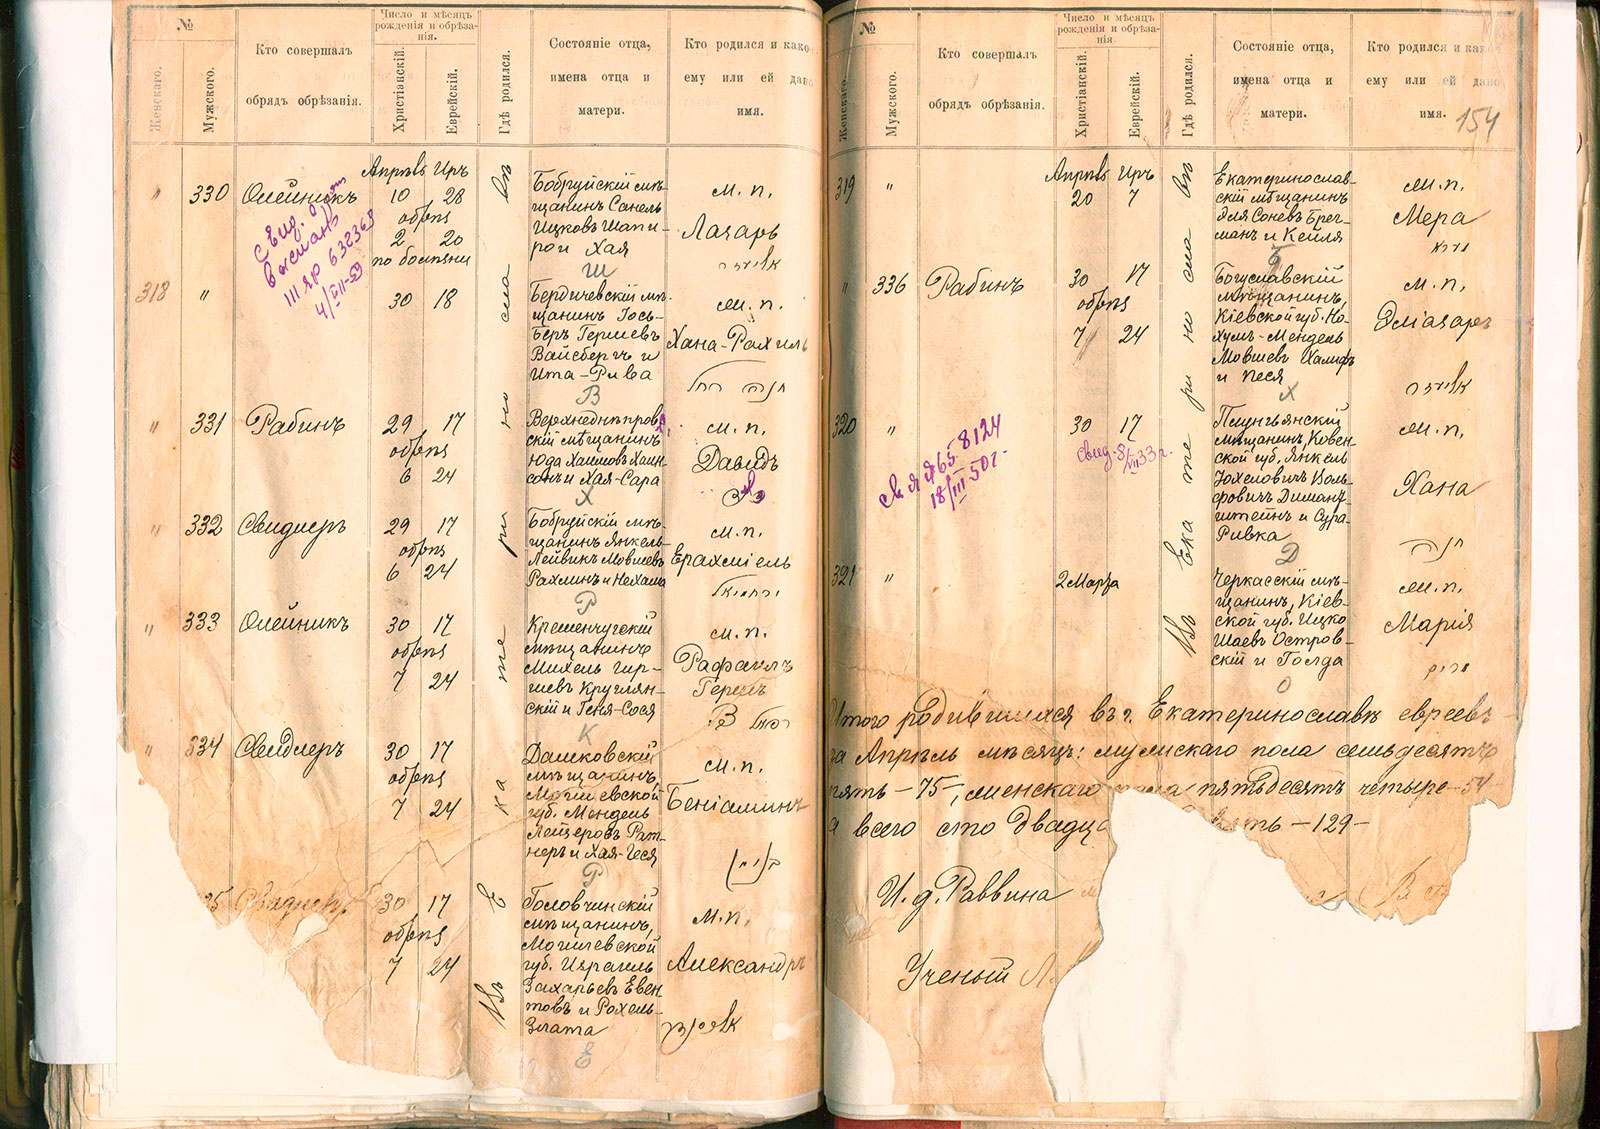 №
Женскаго.
Мужского.
Кто совершалъ
обрядъ обрѣзанія.
Число и мѣсяцъ
рожденія и обрѣза-
нія.
Христіанскій.
Еврейскій.
Гдѣ родился.
Состояніе отца,
имена отца и
матери.
Кто родился и како
ему или ей дано
имя.
Въ Екатеринославѣ
" 330 Олейникъ
Апрѣль Иръ
10 28
обрѣз
2 20
по болѣзни
Бобруйскій мѣ-
щанинъ Санель
Ицковъ Шапи-
ро и Хая
Ш
м. п.
Лазарь
318 "
30 18
Бердичевскій мѣ-
щанинъ Іось-
Беръ Гершевъ
Вайсбергъ и
Ита-Рива
В
м. п.
Хана-Рахиль
חנה רחל
" 331 Рабинъ
29 17
обрѣз
6 24
Верхнеднѣпров-
скій мѣщанинъ
Юда Хаимовъ Хаин-
сонъ и Хая-Сара
Х
м. п.
Давидъ
" 332 Свидлеръ
29 17
обрѣз
6 24
Бобруйскій мѣ-
щанинъ Янкель-
Лейвикъ Мовшевъ
Рахлинъ и Нехама
Р
м. п.
Ерахміель
ירחמיאל
" 333 Олейникъ
30 17
обрѣз
7 24
Кременчугскій
мѣщанинъ
Михель Гир-
шевъ Круглян-
скій и Геня-Сося
К
м. п.
Рафаилъ
Герцъ
" 334 Свидлеръ
30 17
обрѣз
7 24
Дашковскій
мѣщанинъ,
Могилевской
губ. Мендель
Лейзеровъ Рат-
неръ и Хая-Геся
Р
м. п.
Беніаминъ
בנימין
35
30 17
обрѣз
7 24
Головчинскій
мѣщанинъ,
Могилевской
губ. Израиль
Захарьевъ Евен-
товъ и Рохель-
Злата
Е
м. п.
Александръ
№
Женскаго.
Мужского.
Кто совершалъ
обрядъ обрѣзанія.
Число и мѣсяцъ
рожденія и обрѣза-
нія
Христіанскій.
Еврейскій.
Гдѣ родился.
Состояніе отца,
имена отца и
матери.
Кто родился и како
ему или ей дано
имя.
154
Въ Екатеринославѣ
319 "
Апрѣль Иръ
20 7
Екатеринослав-
скій мѣщанинъ
м. п.
Мера
" 336 Рабинъ
30 17
обрѣз
7 24
Богуславскій
мѣщанинъ,
Кіевской губ. Но-
хумъ-Мендель
Мовшевъ Халифъ
и Песя
Х
м. п.
Эліазаръ
320 "
30 17
мѣщанинъ, Ковен-
ской губ. Янкель
Іохеловичъ Воль-
фовичъ Диманд-
штейнъ и Сура-
Ривка
Д
м. п.
Хана
חנה
321 "
2 Марта
Черкасскій мѣ-
щанинъ, Кіев-
ской губ. Ицко
Шаевъ Остров-
скій и Голда
О
м. п.
Марія
Итого родившихся въ г. Екатеринославѣ евреевъ
за Апрѣль мѣсяцъ: мужскаго пола семьдесятъ
пять – 75 –, женскаго пола пятьдесятъ четыре – 54
а всего сто двадца ять – 129 –
И. д. Раввина
Ученый